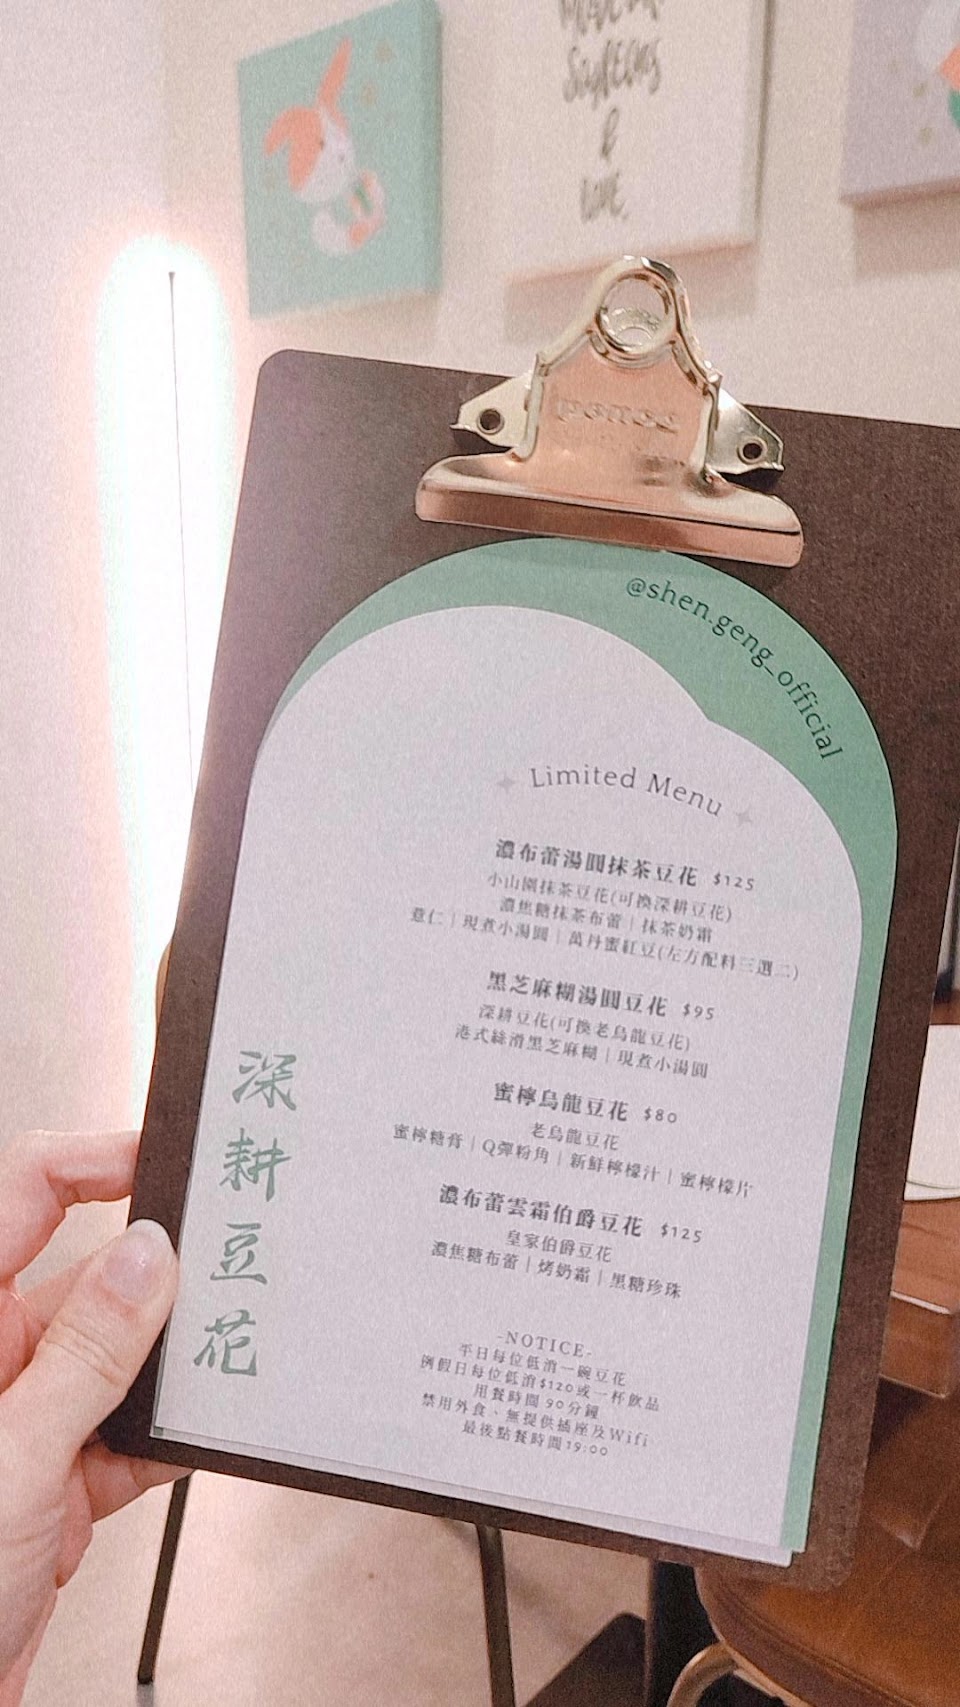 SMILES
&
LOVE.
ponce
@shen.geng_official
Limited Menu
濃布蕾湯圓抹茶豆花 $125
小山園抹茶豆花(可換深耕豆花)
濃焦糖抹茶布蕾｜抹茶奶霜
薏仁｜現煮小湯圓｜萬丹蜜紅豆(左方配料三選二)
黑芝麻糊湯圓豆花 $95
深耕豆花(可換老烏龍豆花)
港式絲滑黑芝麻糊｜現煮小湯圓
蜜檸烏龍豆花 $80
老烏龍豆花
蜜檸糖膏｜Q彈粉角｜新鮮檸檬汁｜蜜檸檬片
濃布蕾雲霜伯爵豆花 $125
皇家伯爵豆花
濃焦糖布蕾｜烤奶霜｜黑糖珍珠
-NOTICE-
平日每位低消一碗豆花
例假日每位低消$120或一杯飲品
用餐時間 90分鐘
禁用外食、無提供插座及Wifi
最後點餐時間19:00
深耕豆花